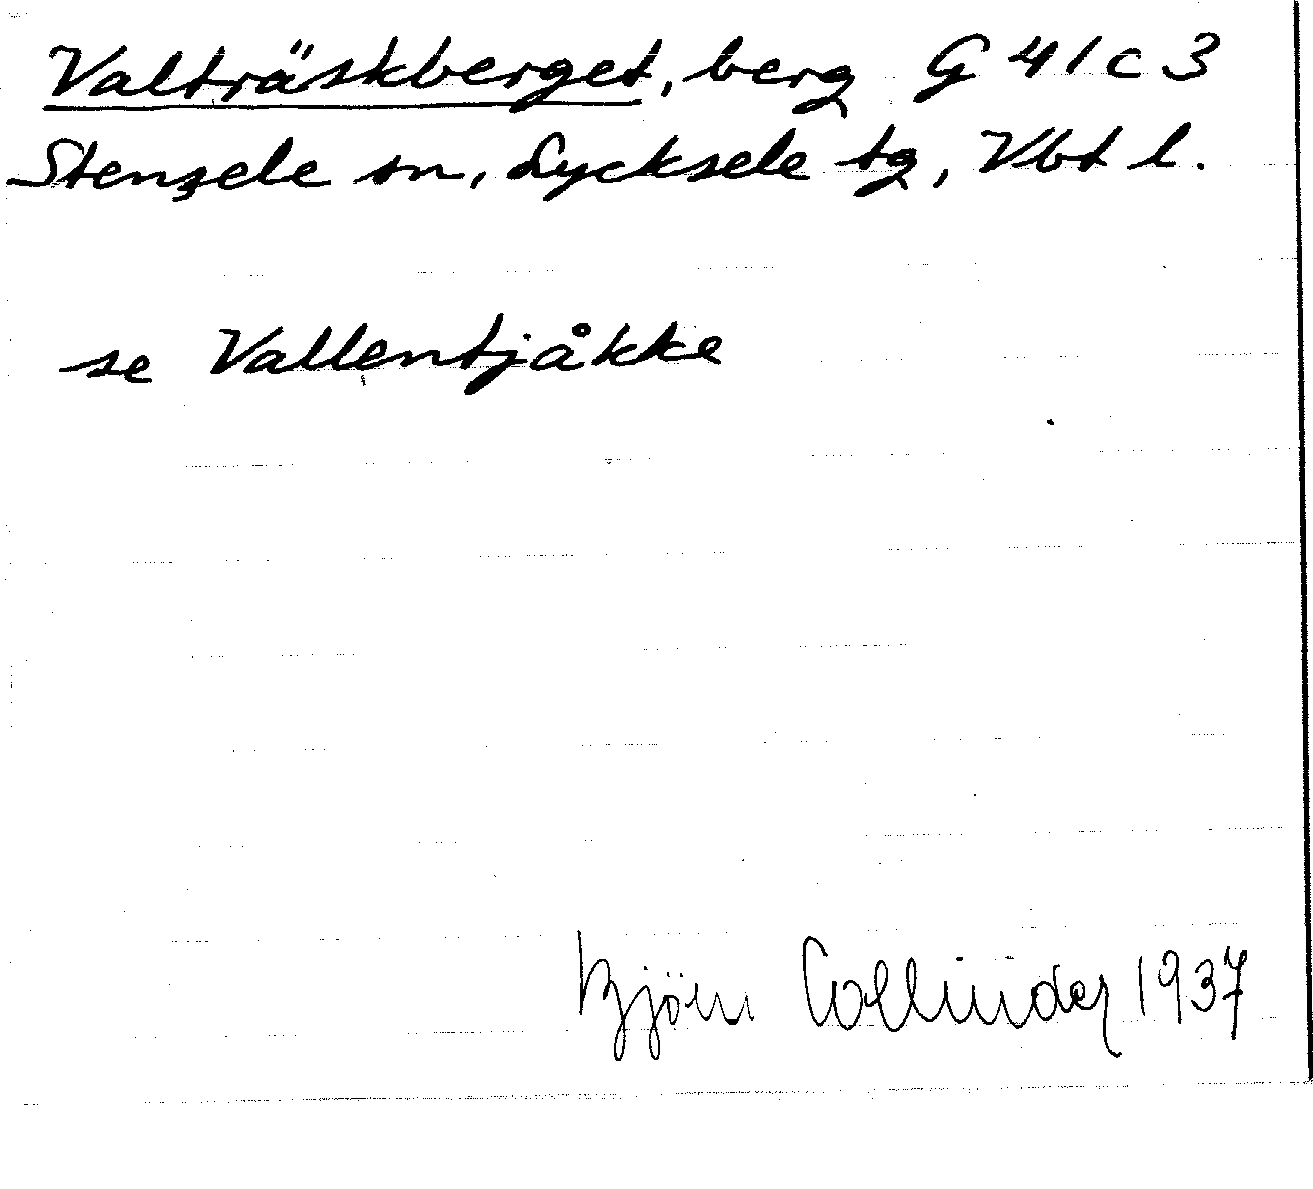 Valträskberget, berg G 41 c 3
Stensele sn, Lycksele tg, Vbt l.
se Vallentjåkke
Björn Collinder 1937